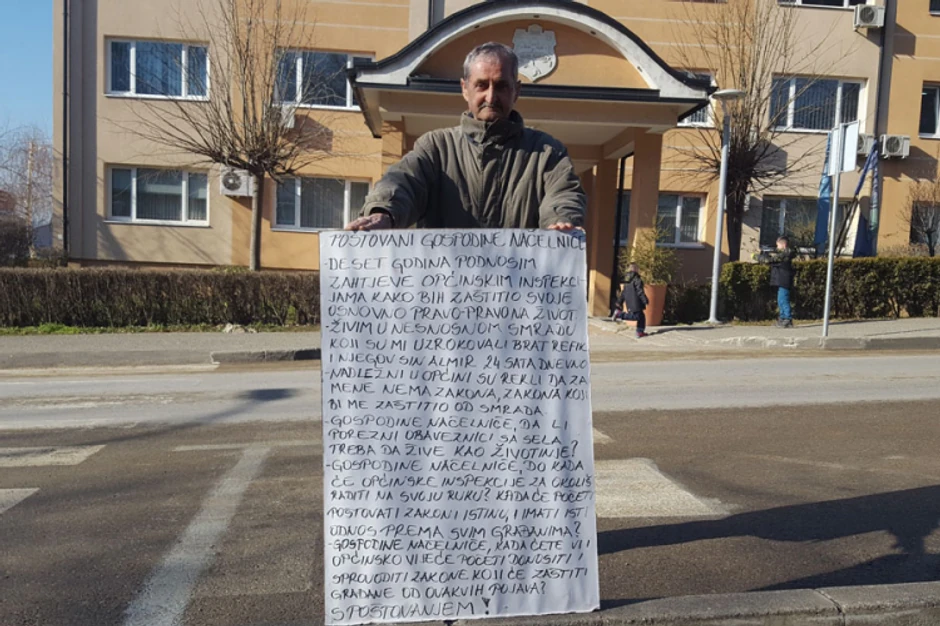 POŠTOVANI GOSPODINE NAČELNIČE
-DESET GODINA PODNOSIM
ZAHTJEVE OPĆINSKIM INSPEKCI-
JAMA KAKO BIH ZAŠTITIO SVOJE
OSNOVNO PRAVO-PRAVO NA ŽIVOT.
-ŽIVIM U NESNOSNOM SMRADU
KOJI SU MI UZROKOVALI BRAT REFIK
I NJEGOV SIN ALMIR 24 SATA DNEVNO
-NADLEŽNI U OPĆINI SU REKLI DA ZA
MENE NEMA ZAKONA, ZAKONA KOJI
BI ME ZAŠTITIO OD SMRADA.
-GOSPODINE NAČELNIČE, DA LI
POREZNI OBAVEZNICI SA SELA
TREBA DA ŽIVE KAO ŽIVOTINJE?
-GOSPODINE NAČELNIČE, DO KADA
ĆE OPĆINSKE INSPEKCIJE ZA OKOLIŠ
RADITI NA SVOJU RUKU? KADA ĆE POČETI
POŠTOVATI ZAKON I ISTINU, I IMATI ISTI
ODNOS PREMA SVIM GRAĐANIMA?
-GOSPODINE NAČELNIČE, KADA ĆETE VI I
OPĆINSKO VIJEĆE POČETI DONOSITI I
SPROVODITI ZAKONE KOJI ĆE ZAŠTITI
GRAĐANE OD OVAKVIH POJAVA?
S POŠTOVANJEM!